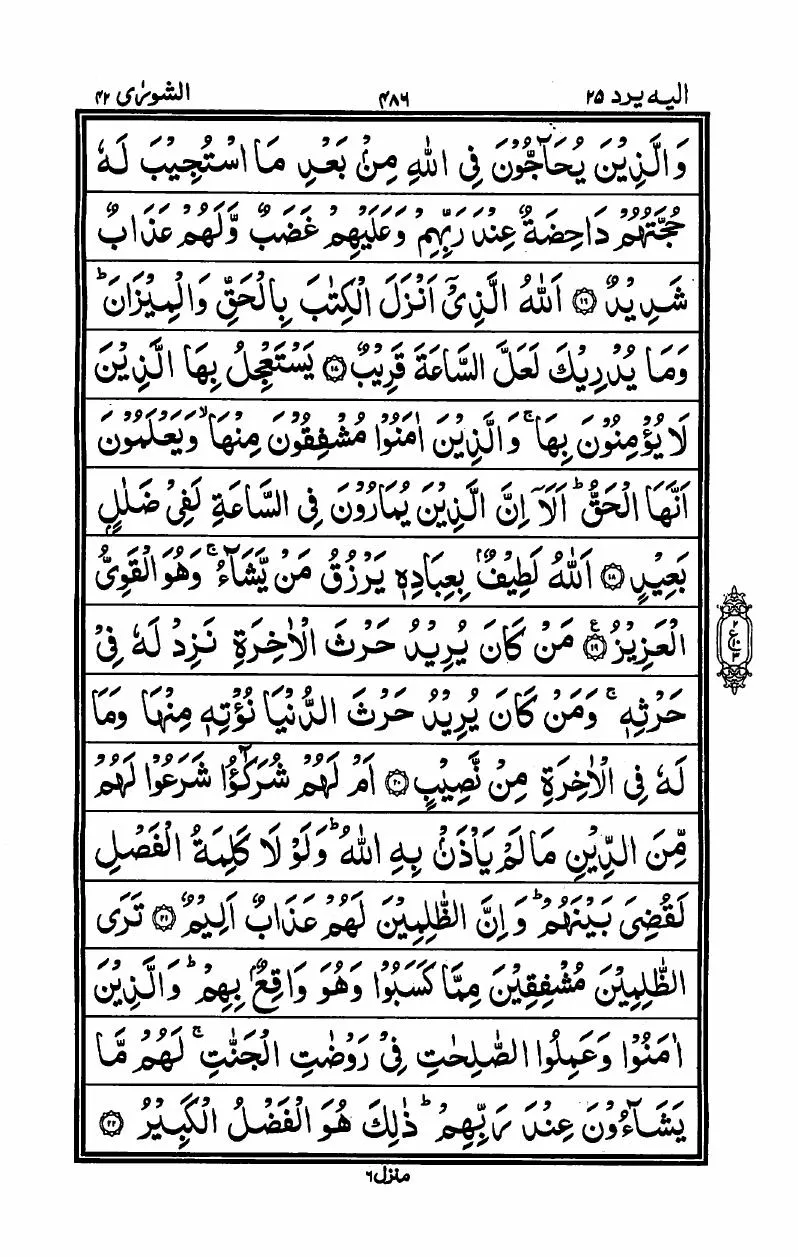 الیه یرد ۲۵ ۴۸۶ الشورٰی ۴۲
وَالَّذِيْنَ يُحَآجُّوْنَ فِى اللّٰهِ مِنْۢ بَعْدِ مَا اسْتُجِيْبَ لَهٗ
حُجَّتُهُمْ دَاحِضَةٌ عِنْدَ رَبِّهِمْ وَعَلَيْهِمْ غَضَبٌ وَّلَهُمْ عَذَابٌ
شَدِيْدٌ ۝۱۶ اَللّٰهُ الَّذِىْۤ اَنْزَلَ الْكِتٰبَ بِالْحَقِّ وَالْمِيْزَانَ ؕ
وَمَا يُدْرِيْكَ لَعَلَّ السَّاعَةَ قَرِيْبٌ ۝۱۷ يَسْتَعْجِلُ بِهَا الَّذِيْنَ
لَا يُؤْمِنُوْنَ بِهَا ۚ وَالَّذِيْنَ اٰمَنُوْا مُشْفِقُوْنَ مِنْهَا ۙ وَيَعْلَمُوْنَ
اَنَّهَا الْحَقُّ ؕ اَلَاۤ اِنَّ الَّذِيْنَ يُمَارُوْنَ فِى السَّاعَةِ لَفِىْ ضَلٰلٍۭ
بَعِيْدٍ ۝۱۸ اَللّٰهُ لَطِيْفٌۢ بِعِبَادِهٖ يَرْزُقُ مَنْ يَّشَآءُ ۚ وَهُوَ الْقَوِىُّ
الْعَزِيْزُ ۝۱۹ ع مَنْ كَانَ يُرِيْدُ حَرْثَ الْاٰخِرَةِ نَزِدْ لَهٗ فِىْ
حَرْثِهٖ ۚ وَمَنْ كَانَ يُرِيْدُ حَرْثَ الدُّنْيَا نُؤْتِهٖ مِنْهَا وَمَا
لَهٗ فِى الْاٰخِرَةِ مِنْ نَّصِيْبٍ ۝۲۰ اَمْ لَهُمْ شُرَكٰٓؤُا شَرَعُوْا لَهُمْ
مِّنَ الدِّيْنِ مَا لَمْ يَاْذَنْۢ بِهِ اللّٰهُ ؕ وَلَوْلَا كَلِمَةُ الْفَصْلِ
لَقُضِىَ بَيْنَهُمْ ؕ وَاِنَّ الظّٰلِمِيْنَ لَهُمْ عَذَابٌ اَلِيْمٌ ۝۲۱ تَرَى
الظّٰلِمِيْنَ مُشْفِقِيْنَ مِمَّا كَسَبُوْا وَهُوَ وَاقِعٌۢ بِهِمْ ؕ وَالَّذِيْنَ
اٰمَنُوْا وَعَمِلُوا الصّٰلِحٰتِ فِىْ رَوْضٰتِ الْجَنّٰتِ ۚ لَهُمْ مَّا
يَشَآءُوْنَ عِنْدَ رَبِّهِمْ ؕ ذٰلِكَ هُوَ الْفَضْلُ الْكَبِيْرُ ۝۲۲
۲ ع ۳
منزل ۶